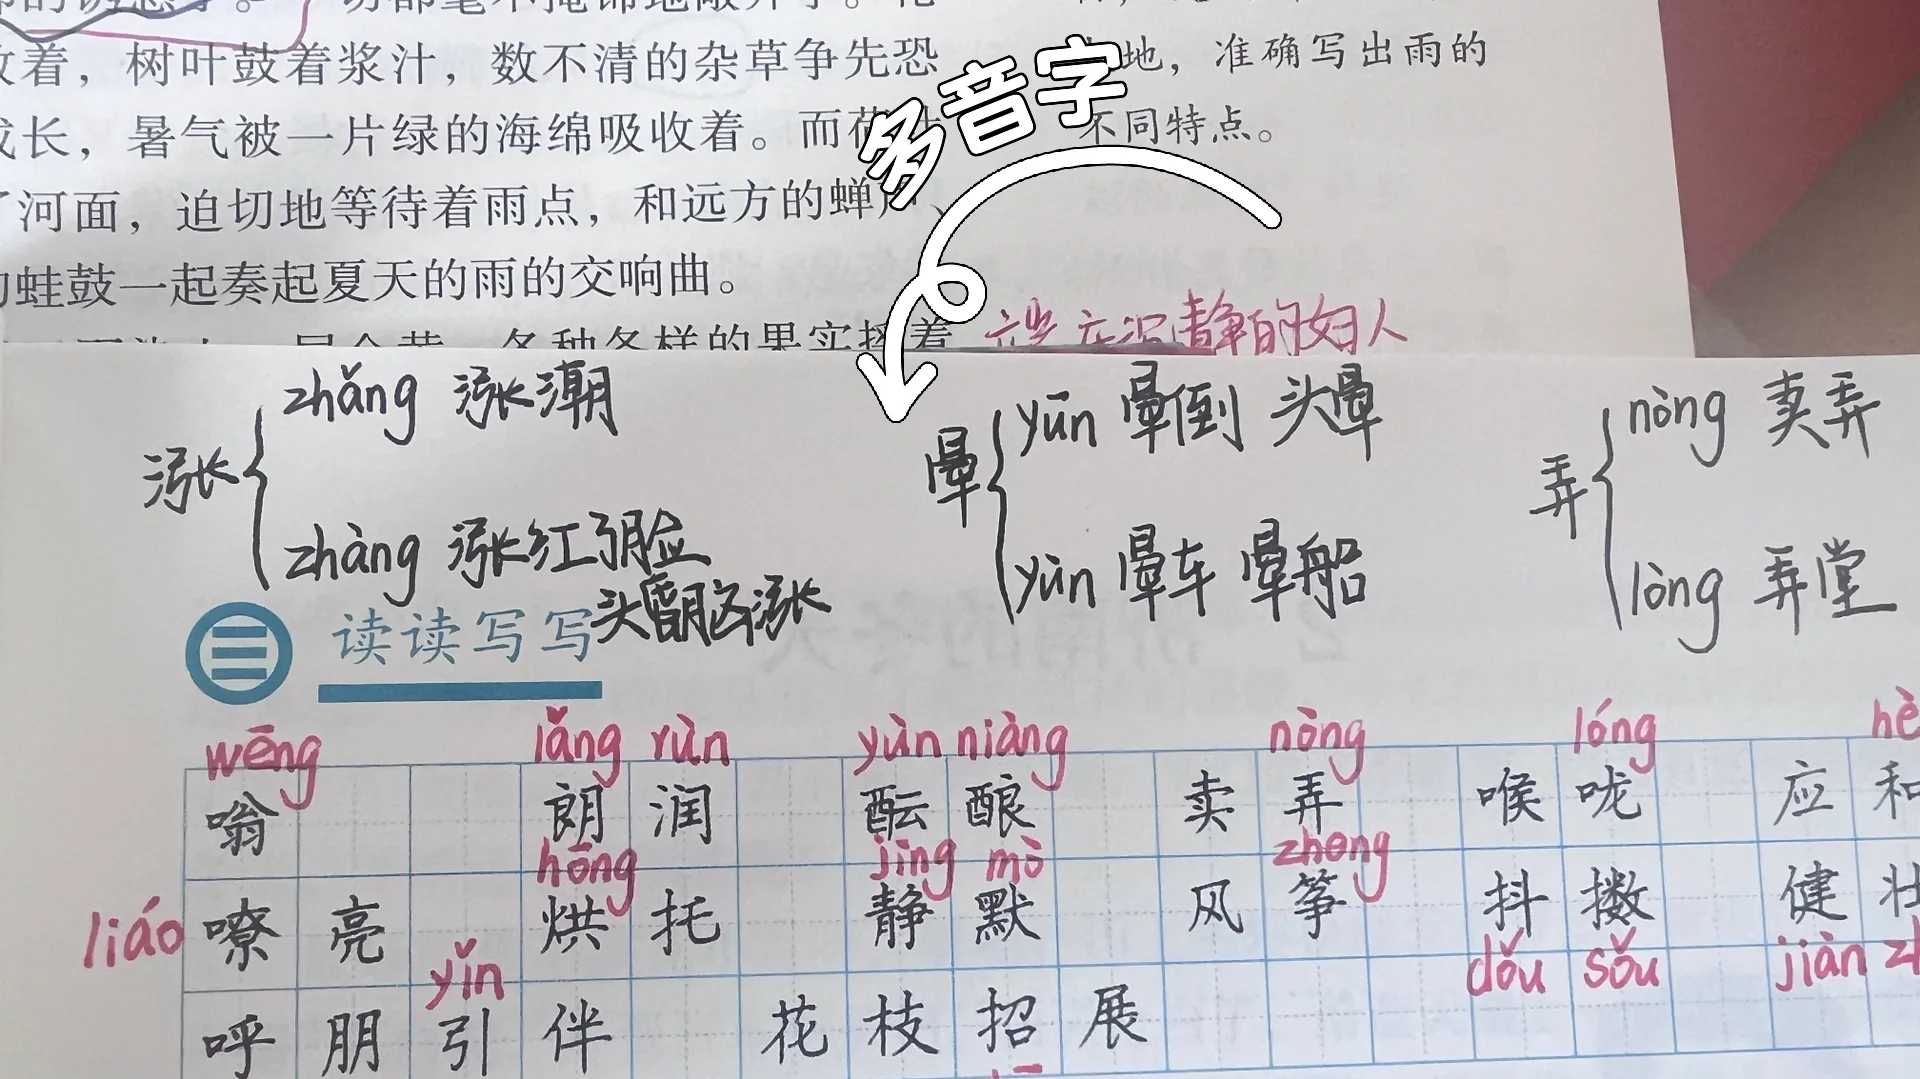 着，树叶鼓着浆汁，数不清的杂草争先恐
成长，暑气被一片绿的海绵吸收着。而荷
河面，迫切地等待着雨点，和远方的蝉声、
蛙鼓一起奏起夏天的雨的交响曲。
地，准确写出雨的
不同特点。
多音字
沉静的妇人
涨
zhǎng 涨潮
zhàng 涨红了脸
头昏脑涨
晕
yūn 晕倒 头晕
yùn 晕车 晕船
弄
nòng 卖弄
lòng 弄堂
读读写写
wēng lǎng rùn yùn niàng nòng lóng hè
嗡 朗润 酝酿 卖弄 喉咙 应和
hōng jìng mò zheng
liáo 嘹亮 烘托 静默 风筝 抖擞 健壮
yǐn dǒu sǒu jiàn
呼朋引伴 花枝招展